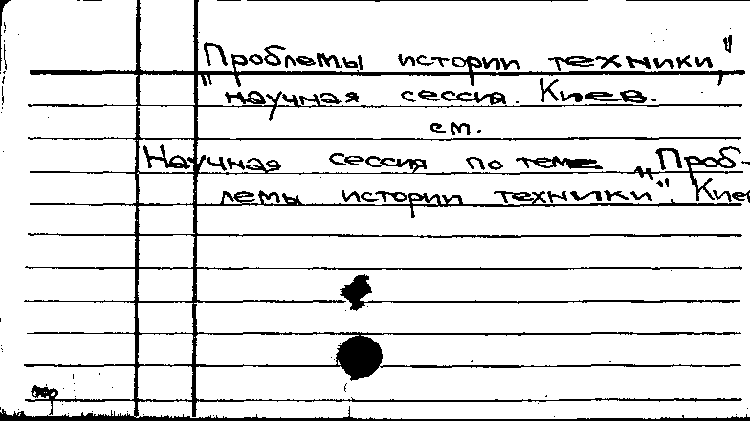 "Проблемы истории техники",
научная сессия. Киев.
см.
Научная сессия по теме „Проб-
лемы истории техники". Киев